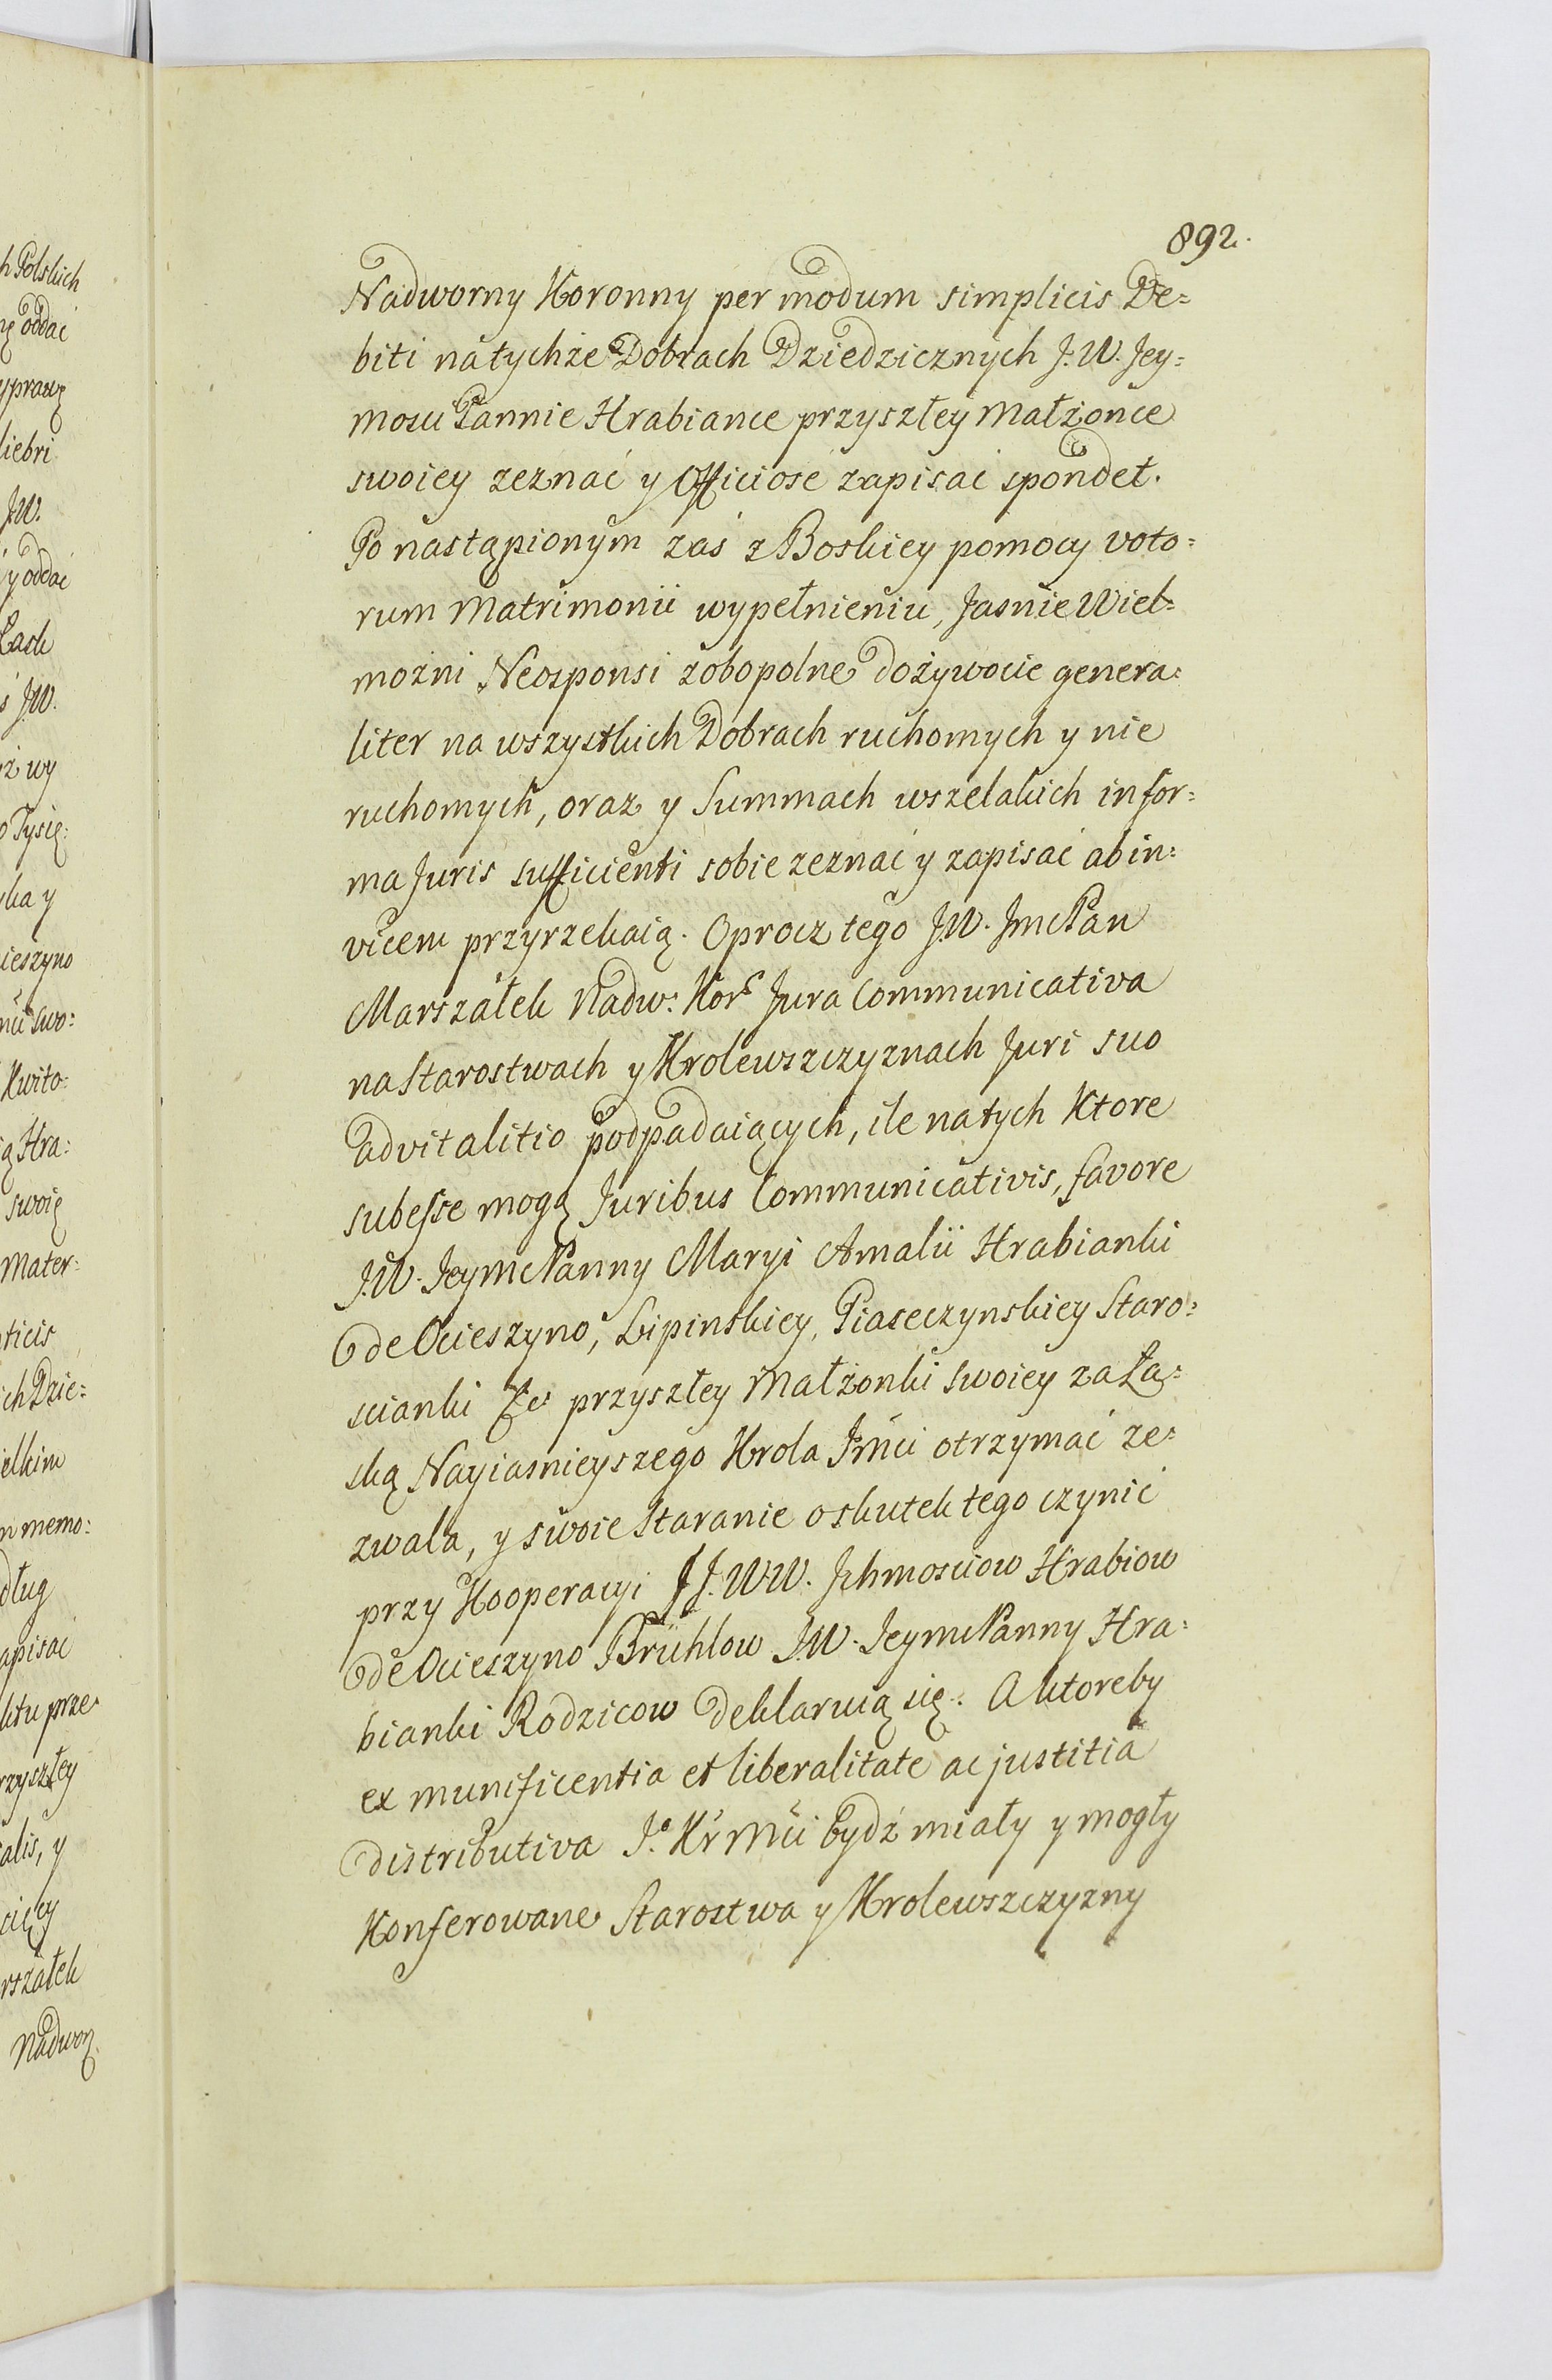 892.
Nadworny Koronny per modum simplicis De=
biti na tychże Dobrach Dziedzicznych J. W. Jey=
mosci Pannie Hrabiance przyszłey Małżonce
swoiey zeznać y Officiose zapisać spondet.
Po nastąpionym zaś z Boskiey pomocy voto=
rum Matrimonii wypełnieniu, Jasnie Wiel=
możni Neosponsi zobopolne dożywocie genera=
liter na wszystkich Dobrach ruchomych y nie
ruchomych, oraz y Summach wszelakich in for=
ma Juris sufficienti sobie zeznać y zapisać ab in=
vicem przyrzekaią. Oprocz tego J.W. Jmc Pan
Marszałek Nadw: Kor: Jura Communicativa
na Starostwach y Krolewszczyznach Juri suo
advitalitio podpadaiących, ile na tych Ktore
subesse mogą Juribus Communicativis, favore
J.W. Jeymc Panny Maryi Amalii Hrabianki
de Ocieszyno, Lipinskiey, Piaseczynskiey Staro=
scianki &c przyszłey Małżonki swoiey za Ła=
ską Nayiasnieyszego Krola Jmci otrzymać ze=
zwala, y swoie staranie o skutek tego czynić
przy Kooperacyi J J. W W. Jchmosciow Hrabiow
de Ocieszyno Brühlow J.W. Jeymc Panny Hra=
bianki Rodzicow deklaruią się. A ktoreby
ex munificentia et liberalitate ac justitia
distributiva J. Kr Mci bydź miały y mogły
Konferowane Starostwa y Krolewszczyzny
h Polskich
oddać
yprawę
liebri
J.W.
y oddać
s J.W.
ż wy
o Tysię:
ka y
cieszyno
swo:
Kwito:
ą Hra:
swoię
Mater:
nticis
ich Dzie:
ielkim
m memo:
dług
apisać
ktu prze
rzyszłey
alis, y
cięcy
rszałek
Nadwor.